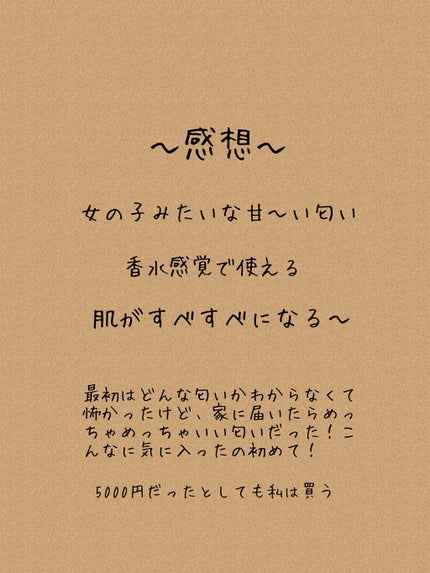 ～感想～
女の子みたいな甘～い匂い
香水感覚で使える
肌がすべすべになる～
最初はどんな匂いかわからなくて
怖かったけど、家に届いたらめっ
ちゃめっちゃいい匂いだった！こ
んなに気に入ったの初めて！
5000円だったとしても私は買う